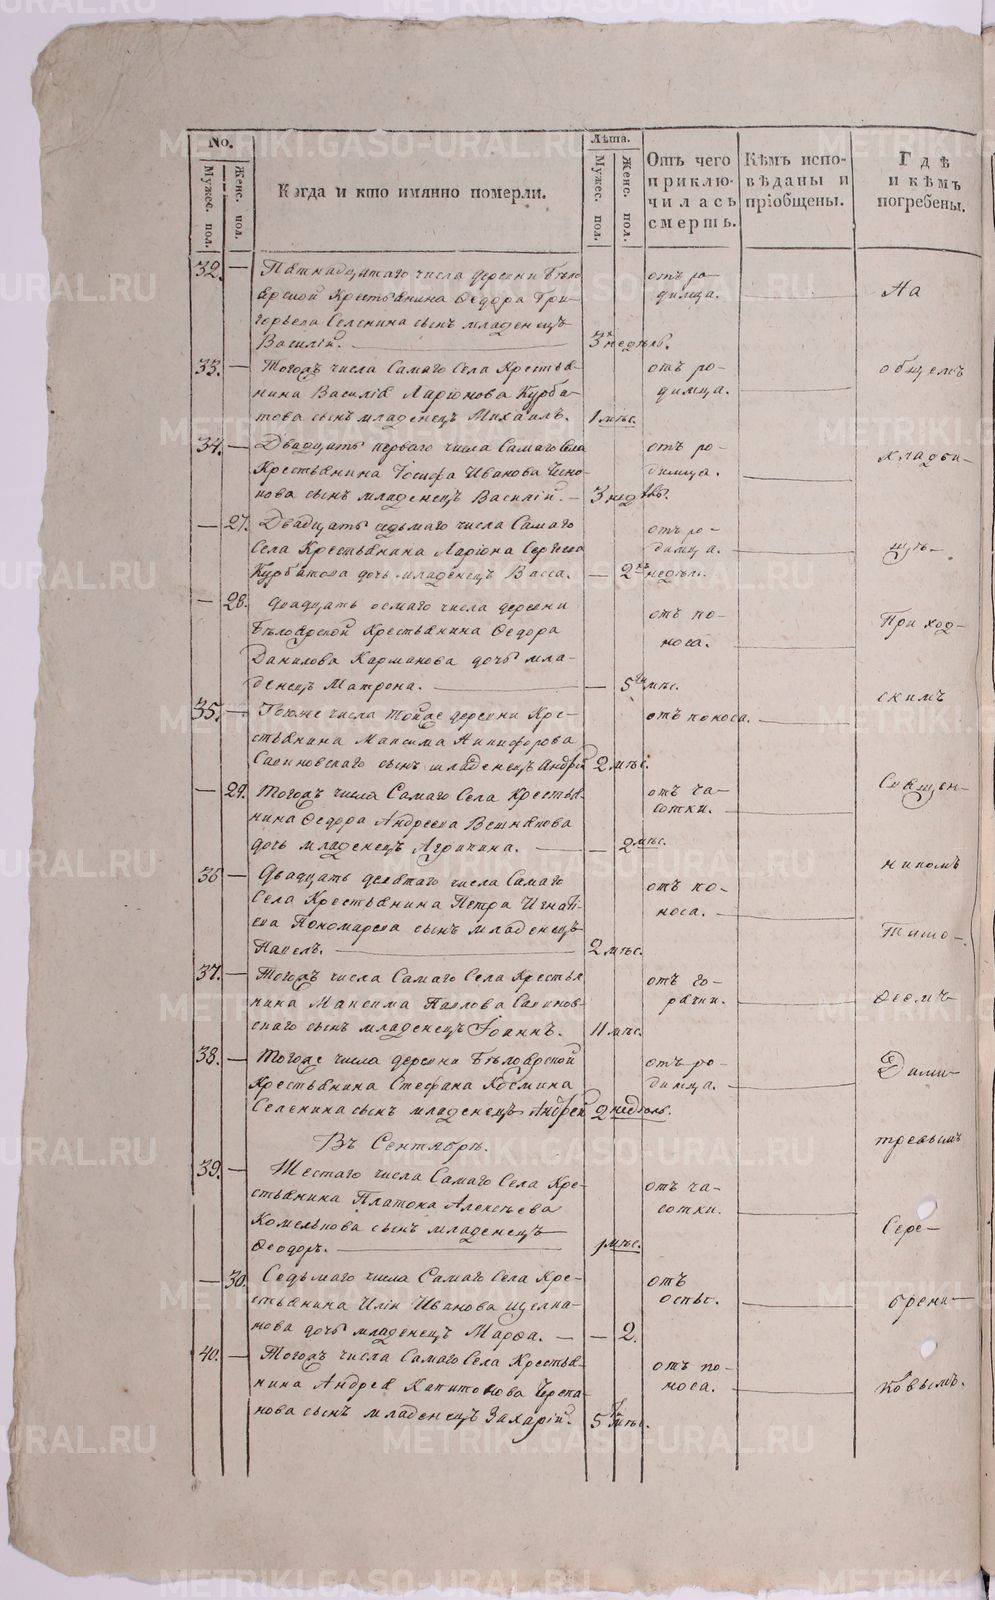 No.
Мужес. пол.
Женс. пол.
Когда и кто имянно померли.
Лѣта.
Мужес. пол.
Женс. пол.
Отъ чего приклю-
чилась смерть.
Кѣмъ испо-
вѣданы и
пріобщены.
Гдѣ
и кѣмъ
погребены.
32. — Пятнадцатаго числа деревни Бѣло
ярской Крестьянина Ѳедора Гри-
горьева Селенина сынъ младенецъ
Василій. 3 недѣль. отъ ро-
димца.
33. — Тогожъ числа Самаго Села Крестья-
нина Василія Ларіонова Курба-
това сынъ младенецъ Михаилъ. 1 мѣс. отъ ро-
димца.
34. — Двадцать перваго числа Самаго Села
Крестьянина Іосифа Иванова
сынъ младенецъ Василій. — 3 недѣль. отъ ро-
димца.
— 27. Двадцать седьмаго числа Самаго
Села Крестьянина Ларіона Сергѣева
Курбатова дочь младенецъ Васса. — 2 недѣль. отъ ро-
димца.
— 28. Двадцать осмаго числа деревни
Бѣлоярской Крестьянина Ѳедора
Данилова Карманова дочь мла-
денецъ Матрона. — 5 мѣс. отъ по-
носа.
35. — числа тойже деревни Кре-
стьянина Максима Никифорова
сынъ младенецъ Андрей 2 мѣс. отъ поноса.
— 29. Тогожъ числа Самаго Села Крестья-
нина Ѳедора Андреева
дочь младенецъ Агрипина. — 2 мѣс. отъ ча-
хотки.
36 — Двадцать девятаго числа Самаго
Села Крестьянина Петра Игнаті-
ева Пономарева сынъ младенецъ
Павелъ. 2 мѣс. отъ по-
носа.
37. — Тогожъ числа Самаго Села Крестья-
нина Максима Павлова
сынъ младенецъ Іоаннъ. 11 мѣс. отъ го-
рячки.
38. — Тогоже числа деревни Бѣлоярской
Крестьянина Стефана Космина
Селенина сынъ младенецъ Андрей 2 недѣль. отъ ро-
димца.
Въ Сентябрѣ.
39. — Шестаго числа Самаго Села Кре-
стьянина Платона Алексѣева
сынъ младенецъ
Ѳеодоръ. 1 мѣс. отъ ча-
хотки.
— 30. Седьмаго числа Самаго Села Кре-
стьянина Иліи Иванова
дочь младенецъ Марѳа. — — 2. отъ
оспы.
40. — Тогожъ числа Самаго Села Крестья-
нина Андрея Капитонова Черепа-
нова сынъ младенецъ Захарій. 5 мѣс. отъ по-
носа.
На
общемъ
кладби-
щѣ
Приход-
скимъ
Священ-
никомъ
Тимо-
ѳеемъ
Дими-
тревымъ
Сере-
брени-
ковымъ.
METRIKI.GASO-URAL.RU